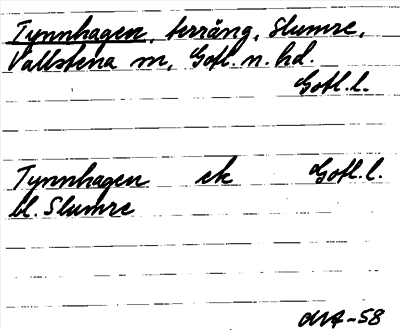 Tynnhagen, terräng, Slumre,
Vallstena sn, Gotl. n. hd.
Gotl. l.
Tynnhagen ek Gotl. l.
bl. Slumre
-58